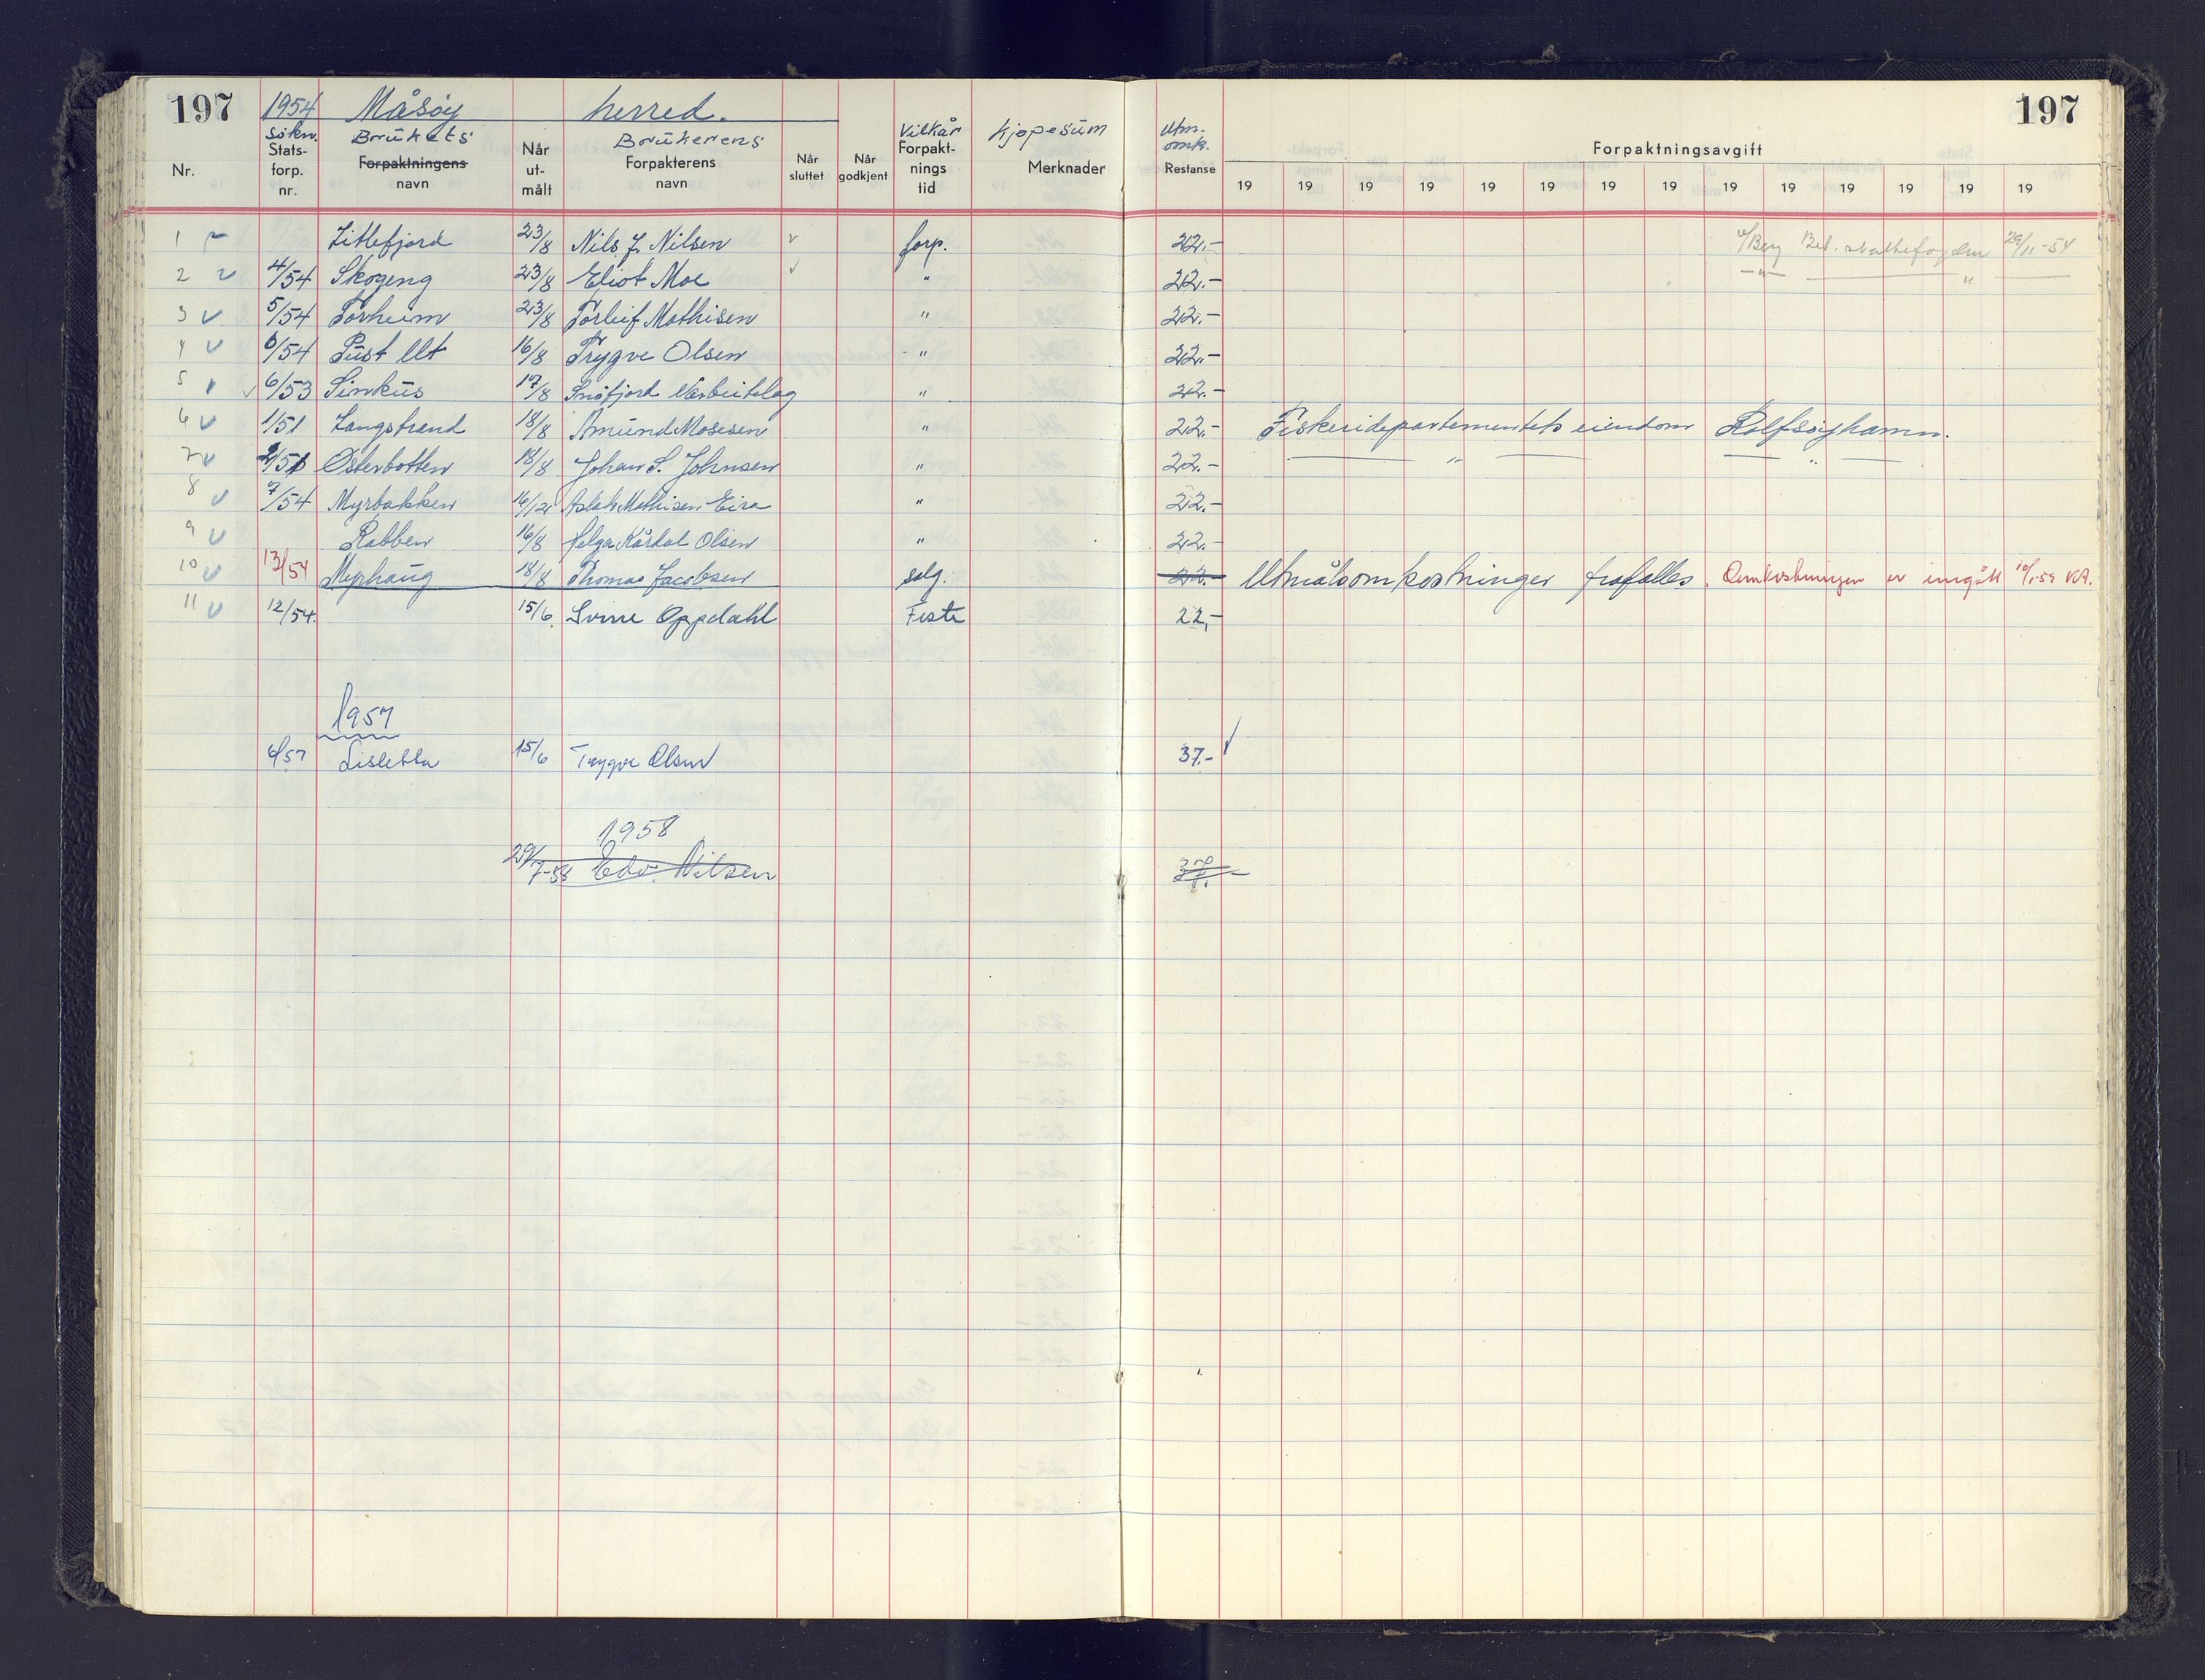 197 1954 Måsøy herred. 197
Nr. Søkn. Stats-forp. nr. Brukets Forpaktningens navn Når ut-målt Brukerens Forpakterens navn Når sluttet Når godkjent Vilkår Forpakt-nings tid Kjøpesum Merknader Utm. omk. Restanse Forpaktningsavgift
19 19 19 19 19 19 19 19 19 19 19 19 19 19
1 Litlefjord 23/8 Nils J. Nilsen v forp. 22.- Bet. 29/11-54
2 v 4/54 Skogeng 23/8 Eliot Moe v " 22.- " "
3 v 5/54 Torheim 23/8 Torleif Mathisen " 22.-
4 v 6/54 16/8 Trygve Olsen " 22.-
5 v v 6/53 Sinkus 17/8 Snøfjord " 22.-
6 v 1/51 Langstrand 18/8 Amund Mosesen " 22.- Fiskeridepartementets eiendom Rolfsøyhamn.
7 v 2/51 Østerbotten 18/8 Johan S. Johnsen " 22.- " "
8 v 7/54 Myrbakken 16/12 Aslak Mathisen Eira " 22.-
9 v Rabben 16/8 Helga Kårdal Olsen " 22.-
10 v 13/54 Myrhaug 18/8 Thomas Jacobsen salg. 22.- Utmålsomkostninger frafalles. Omkostningen er inngått 10/1-59
11 v 12/54. 15/6. Sverre Oppdahl Feste 22,-
1957
6/57 15/6 Trygve Olsen 37.- v
1958
29/7-58 Edv. Nilsen 37.-